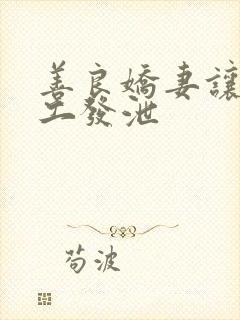 善良嬌妻讓
工發泄
苟波